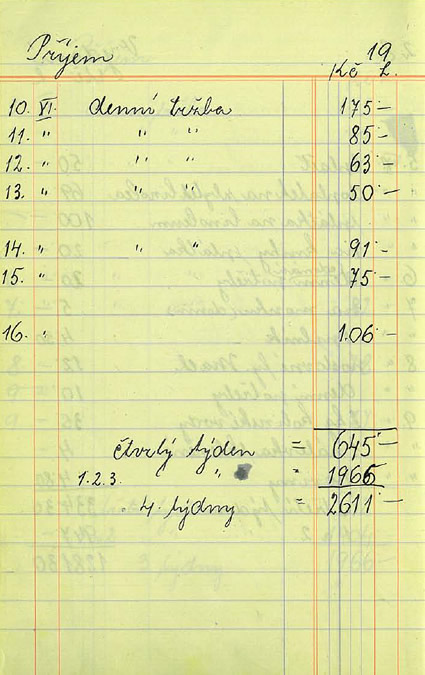 Příjem 19
Kč h.
10. VI. denní tržba 175 -
11. " " " 85 -
12. " " " 63 -
13. " " " 50 -
14. " " " 91 -
15. " 75 -
16. " 1.06 -
čtvrtý týden = 645 -
1.2.3. " " 1966
4. týdny = 2611 -